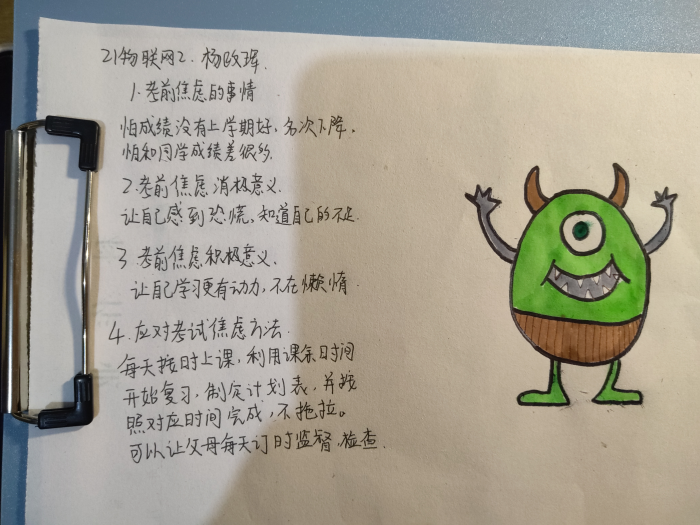 21物联网2. 杨政珲.
1.考前焦虑的事情
怕成绩没有上学期好，名次下降。
怕和同学成绩差很多.
2.考前焦虑消极意义.
让自己感到恐慌,知道自己的不足.
3 考前焦虑积极意义.
让自己学习更有动力,不在懒惰.
4.应对考试焦虑方法.
每天按时上课,利用课余时间
开始复习,制定计划表,并按
照对应时间完成,不拖拉。
可以让父母每天订时监督,检查.